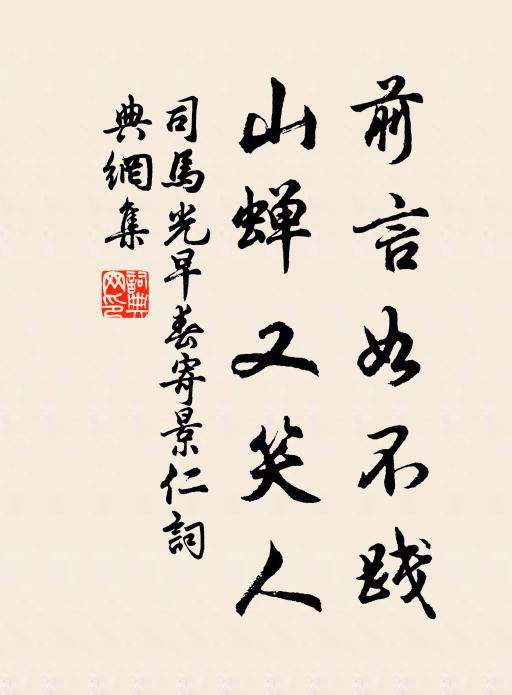 前言如不践
山蝉又笑人
司馬光早春寄景仁詞
典網集
詞典网印